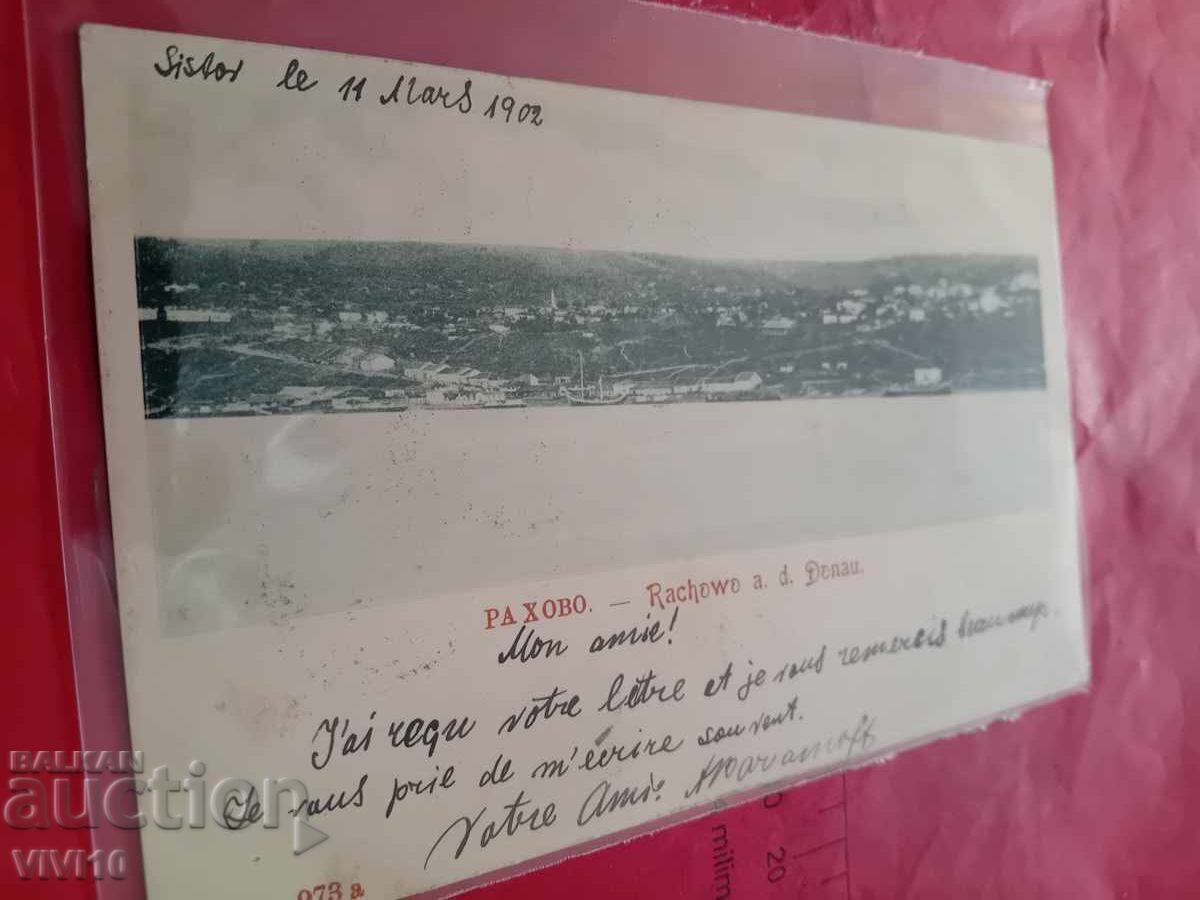 Sistov le 11 Mars 1902
РАХОВО. — Rachowo a. d. Donau.
Mon amie!
J'ai reçu votre lètre et je vous remercis beaucoup.
Je vous prie de m'écrire souvent.
Votre Amie
973 a
BALKAN
auction
VIVI10
20
milim